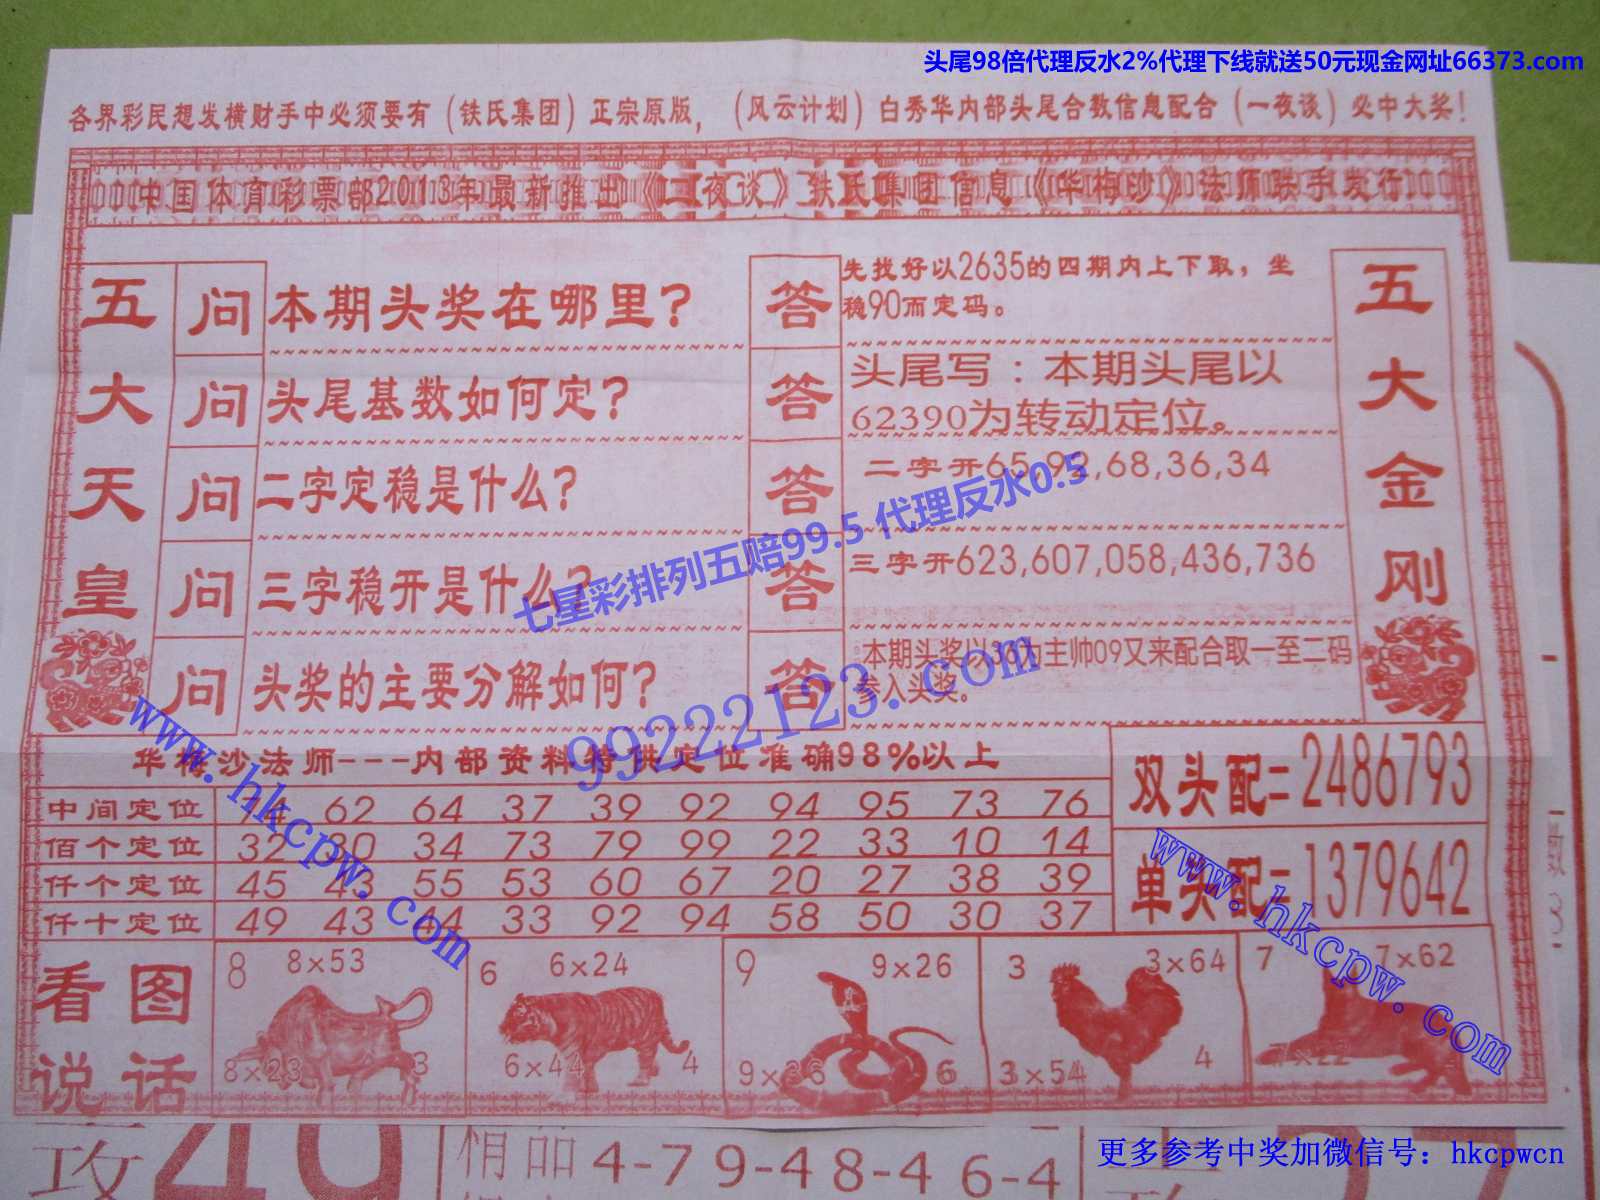 头尾98倍代理反水2%代理下线就送50元现金网址66373.com
各界彩民想发横财手中必须要有（铁氏集团）正宗原版，（风云计划）白秀华内部头尾合数信息配合（一夜谈）必中大奖！
中国体育彩票部2013年最新推出《一夜谈》铁氏集团信息《华梅沙》法师联手发行
五大天皇
问 本期头奖在哪里？
答 先找好以2635的四期内上下取，坐
稳90而定码。
问 头尾基数如何定？
答 头尾写：本期头尾以
62390为转动定位。
问 二字定稳是什么？
答 二字开65,92,68,36,34
问 三字稳开是什么？
答 三字开623,607,058,436,736
问 头奖的主要分解如何？
答 本期头奖以36为主帅09又来配合取一至二码
参入头奖。
五大金刚
七星彩排列五赔99.5 代理反水0.5
99222123.com
www.hkcpw.com
www.hkcpw.com
华梅沙法师---内部资料特供定位准确98%以上
中间定位 62 64 37 39 92 94 95 73 76
佰个定位 32 30 34 73 79 99 22 33 10 14
仟个定位 45 43 55 53 60 67 20 27 38 39
仟十定位 49 43 44 33 92 94 58 50 30 37
双头配=2486793
单头配=1379642
看图
说话
8 8×53
8×23 3
6 6×24
6×44 4
9 9×26
9×36 6
3 3×64
3×54 4
7 7×62
7×22
攻
精品 4-79-48-46-4
更多参考中奖加微信号：hkcpwcn